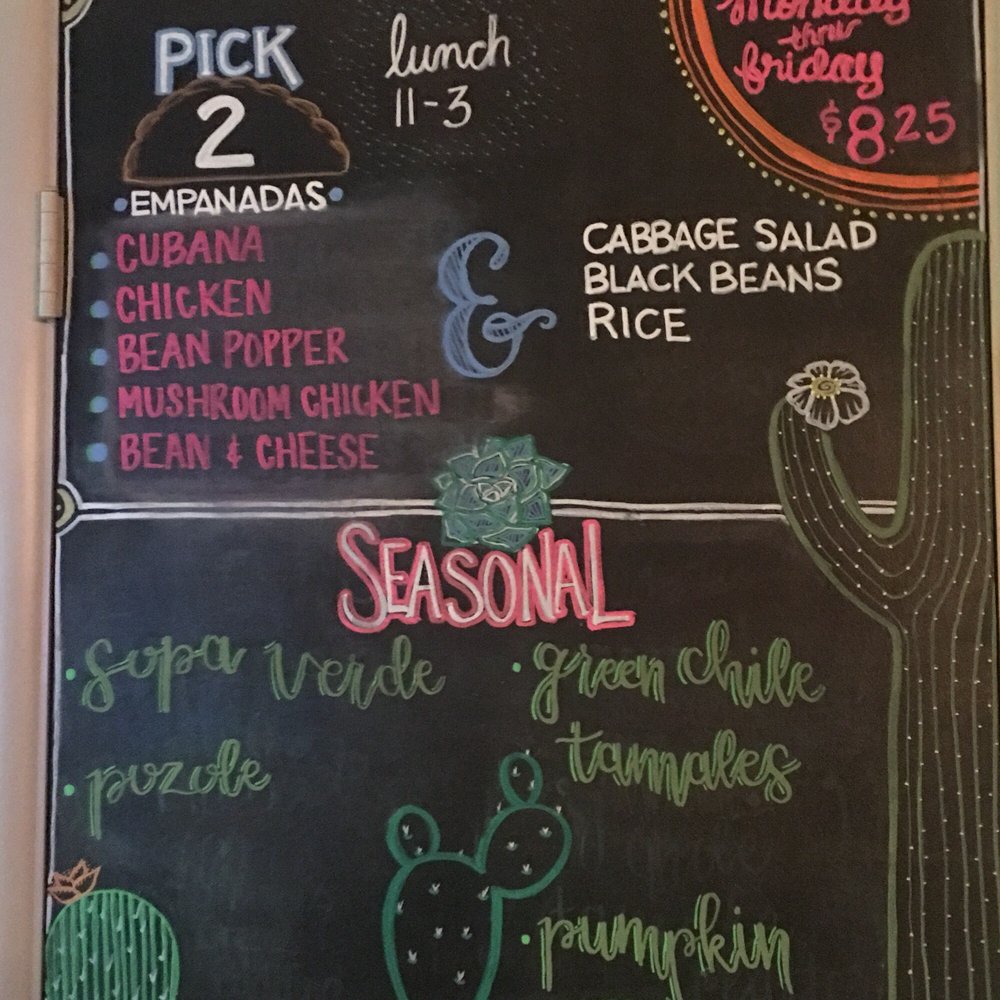 PICK
2
EMPANADAS
CUBANA
CHICKEN
BEAN POPPER
MUSHROOM CHICKEN
BEAN & CHEESE
lunch
11-3
&
CABBAGE SALAD
BLACK BEANS
RICE
monday
thru
friday
$8.25
SEASONAL
sopa verde
pozole
green chile
tamales
pumpkin